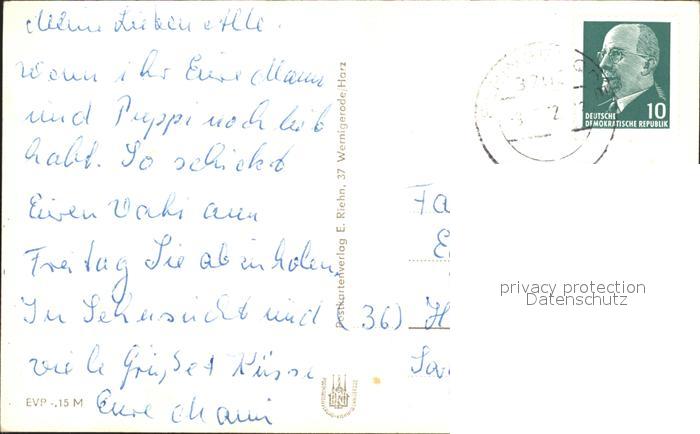 Meine Lieben alle.
wenn ihr Eure Mami
und Puppi noch lieb
habt. So schickt
Euren Vati am
Freitag Sie abzuholen,
In Sehnsucht und
viele Grüße + Küsse
Eure Mami
EVP -,15 M
Postkartenverlag E. Riehn, 37 Wernigerode/Harz
10
DEUTSCHE
DEMOKRATISCHE REPUBLIK
Fa
(36) H
privacy protection
Datenschutz